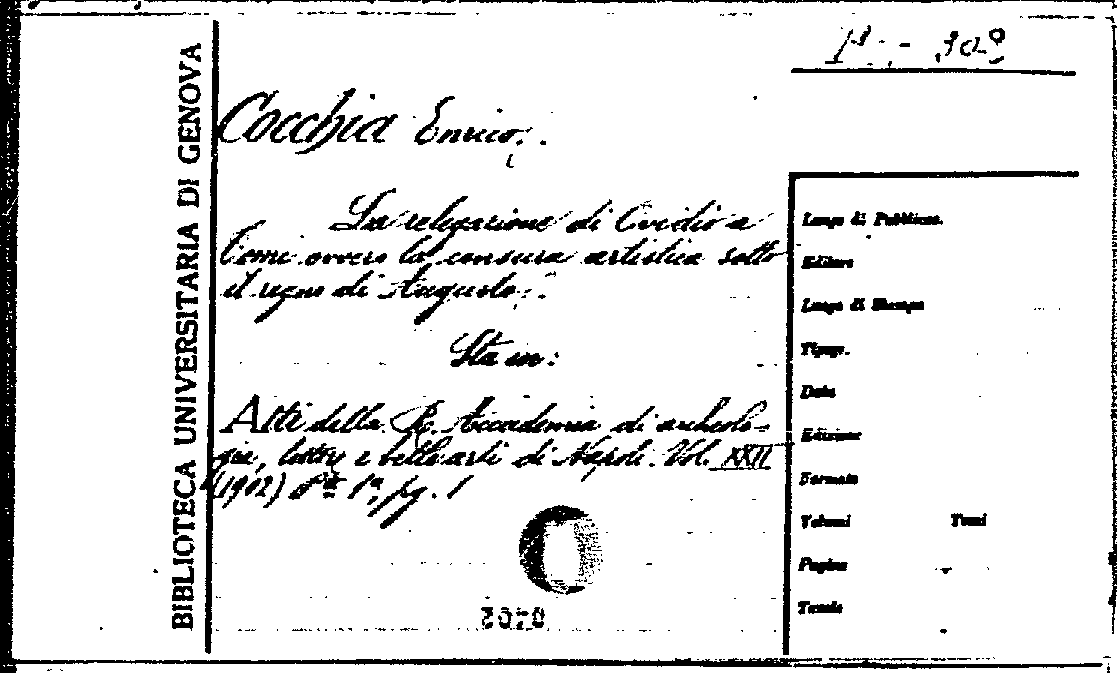 BIBLIOTECA UNIVERSITARIA DI GENOVA
Cocchia Enrico.
La relegazione di Ovidio a
Tomi ovvero la censura artistica sotto
il regno di Augusto.
Sta in:
Atti della R. Accademia di archeolo-
gia, lettere e belle arti di Napoli. Vol. XXII
(1902) pte 1a, pg. 1
Luogo di Pubblicaz.
Editore
Luogo di Stampa
Tipogr.
Data
Edizione
Formato
Volumi Tomi
Pagine
Tavole